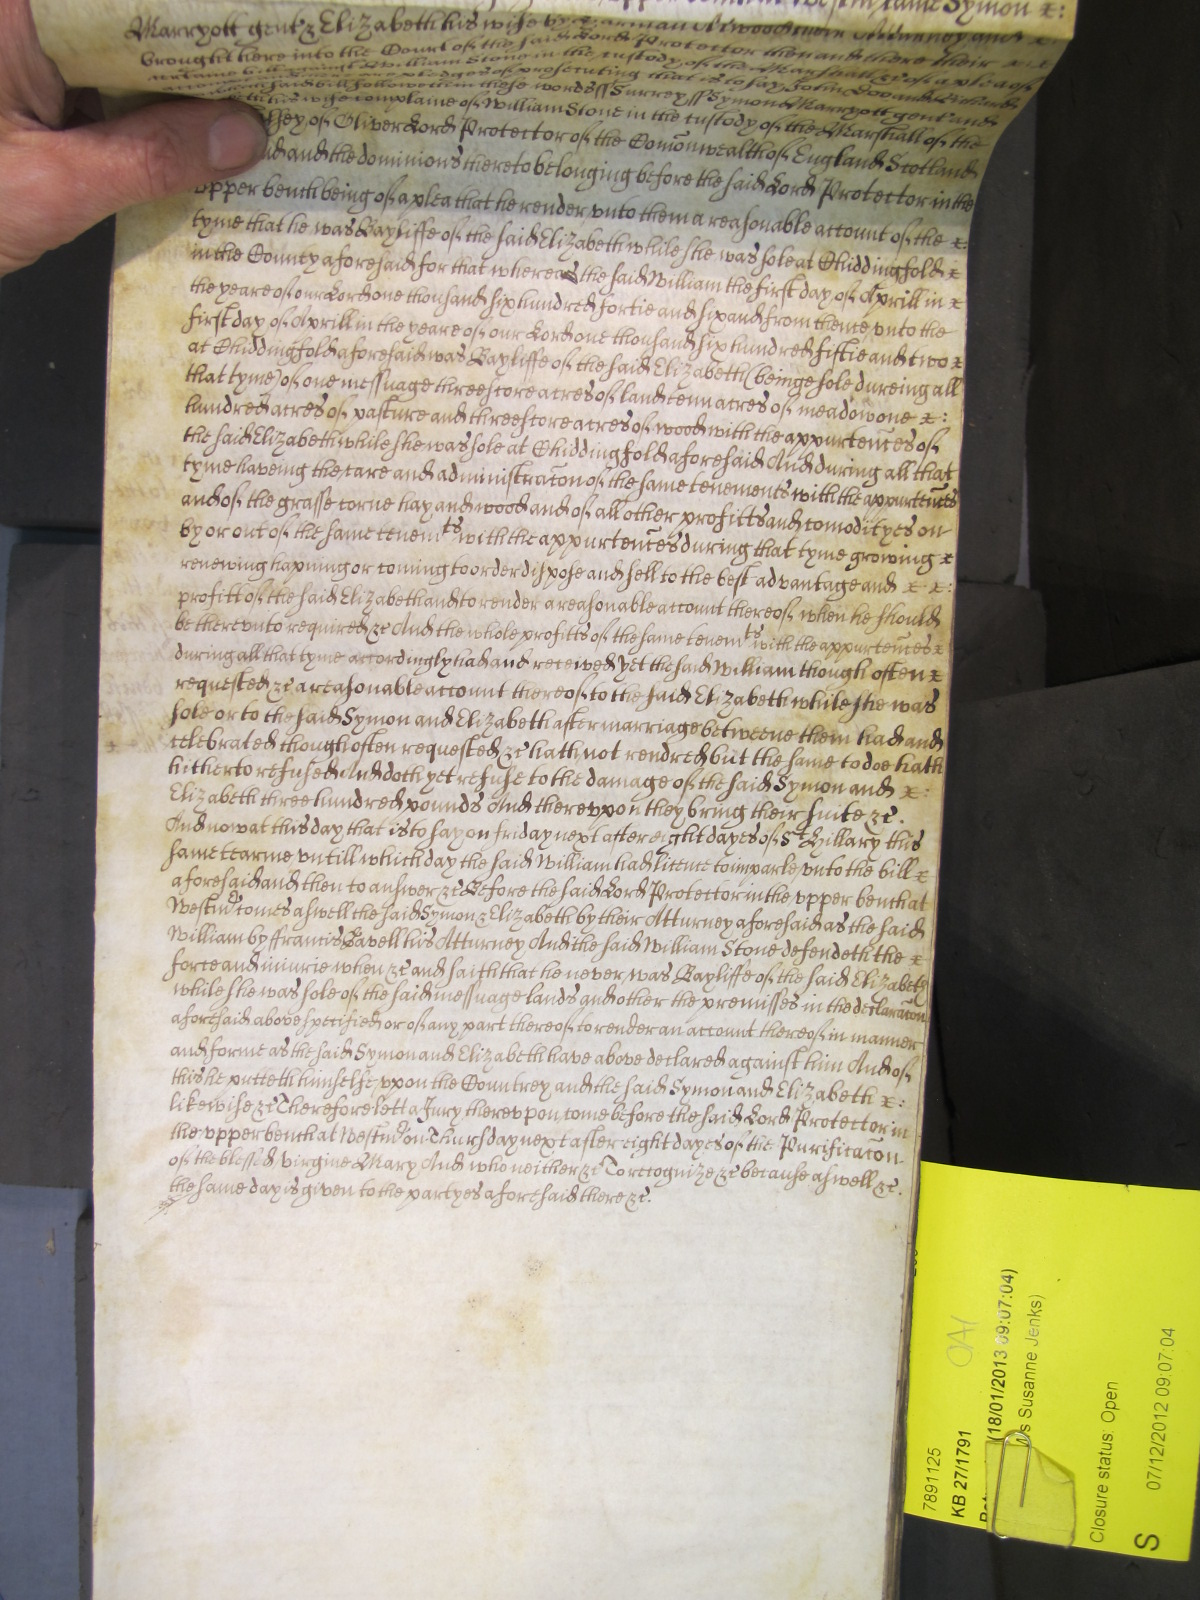 upper bench Westm same Symon x:
Marryott gent & Elizabeth his wife by Atwood their Atturney and x
brought here into the Court of the said Lord Protector then and there their x x
certaine bill against William Stone in the custody of the Marshall &c of a plea of
and there are pledges of prosecuting that is to say John Doo and Richard
said bill followeth in these words ss Surrey ss Symon Marryott gent and
Elizabeth his wife complaine of William Stone in the custody of the Marshall of the
of Oliver Lord Protector of the Comonwealth of England Scotland
and the dominions thereto belonging before the said Lord Protector in the
upper bench being of a plea that he render unto them a reasonable account of the x:
tyme that he was Bayliffe of the said Elizabeth while she was sole at Chiddingfold x
in the County aforesaid for that whereas the said William the first day of Aprill in x
the yeare of our Lord one thousand six hundred fortie and six and from thence unto the
first day of Aprill in the yeare of our Lord one thousand six hundred fiftie and two x
at Chiddingfold aforesaid was Bayliffe of the said Elizabeth (beinge sole dureing all
that tyme) of one messuage threescore acres of land tenn acres of meadow one x:
hundred acres of pasture and threescore acres of wood with the appurtences of
the said Elizabeth while she was sole at Chiddingfold aforesaid And during all that
tyme haveing the care and administracon of the same tenements with the appurtences
and of the grasse corne hay and wood and of all other profitts and comodityes on
by or out of the same tenemts with the appurtences during that tyme growing x
renewing hapning or coming to order dispose and sell to the best advantage and x x:
profitt of the said Elizabeth and to render a reasonable account thereof when he should
be thereunto required &c And the whole profitts of the same tenemts with the appurtences x
during all that tyme accordingly had and received yet the said William though often x
requested &c a reasonable account thereof to the said Elizabeth while she was
sole or to the said Symon and Elizabeth after marriage betweene them had and
celebrated though often requested &c hath not rendred but the same to doe hath
hitherto refused And doth yet refuse to the damage of the said Symon and x:
Elizabeth three hundred pounds And thereupon they bring their suite &c.
And now at this day that is to say on friday next after eight dayes of St Hillary this
same tearme untill which day the said William had licence to imparle unto the bill x
aforesaid and then to answer &c Before the said Lord Protector in the upper bench at
Westmd comes aswell the said Symon & Elizabeth by their Atturney aforesaid as the said
William by ffrancis Cavell his Atturney And the said William Stone defendeth the x
force and iniurie when &c and saith that he never was Bayliffe of the said Elizabeth
while she was sole of the said messuage lands and other the premisses in the declaracon
aforesaid above specified or of any part thereof to render an account thereof in manner
and forme as the said Symon and Elizabeth have above declared against him And of
this he putteth himselfe upon the Countrey and the said Symon and Elizabeth x:
likewise &c Therefore lett a Jury thereupon come before the said Lord Protector in
the upper bench at Westmd on Thursday next after eight dayes of the Purificacon
of the blessed virgine Mary And who neither &c To recognize &c because aswell &c.
the same day is given to the partyes aforesaid there &c.
7891125
KB 27/1791
(18/01/2013 09:07:04)
s Susanne Jenks)
Closure status: Open
S
07/12/2012 09:07:04